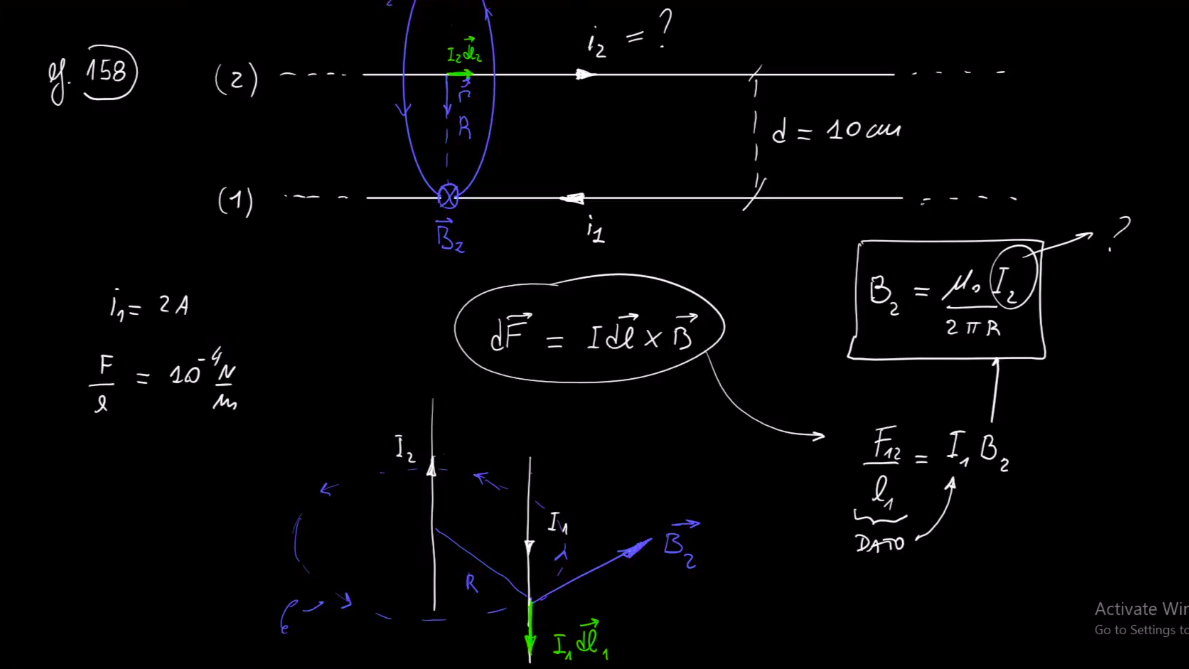 y. 158
(2)
I₂ dl⃗₂
i₂ = ?
r⃗
R
d = 10 cm
(1)
B⃗₂
i₁
i₁ = 2A
F/l = 10⁻⁴ N/m
dF⃗ = I dl⃗ × B⃗
B₂ = μ₀ I₂ / 2πR
?
F₁₂/l₁ = I₁ B₂
DATO
I₂
I₁
R
B⃗₂
I₁ dl⃗₁
Activate Win
Go to Settings to